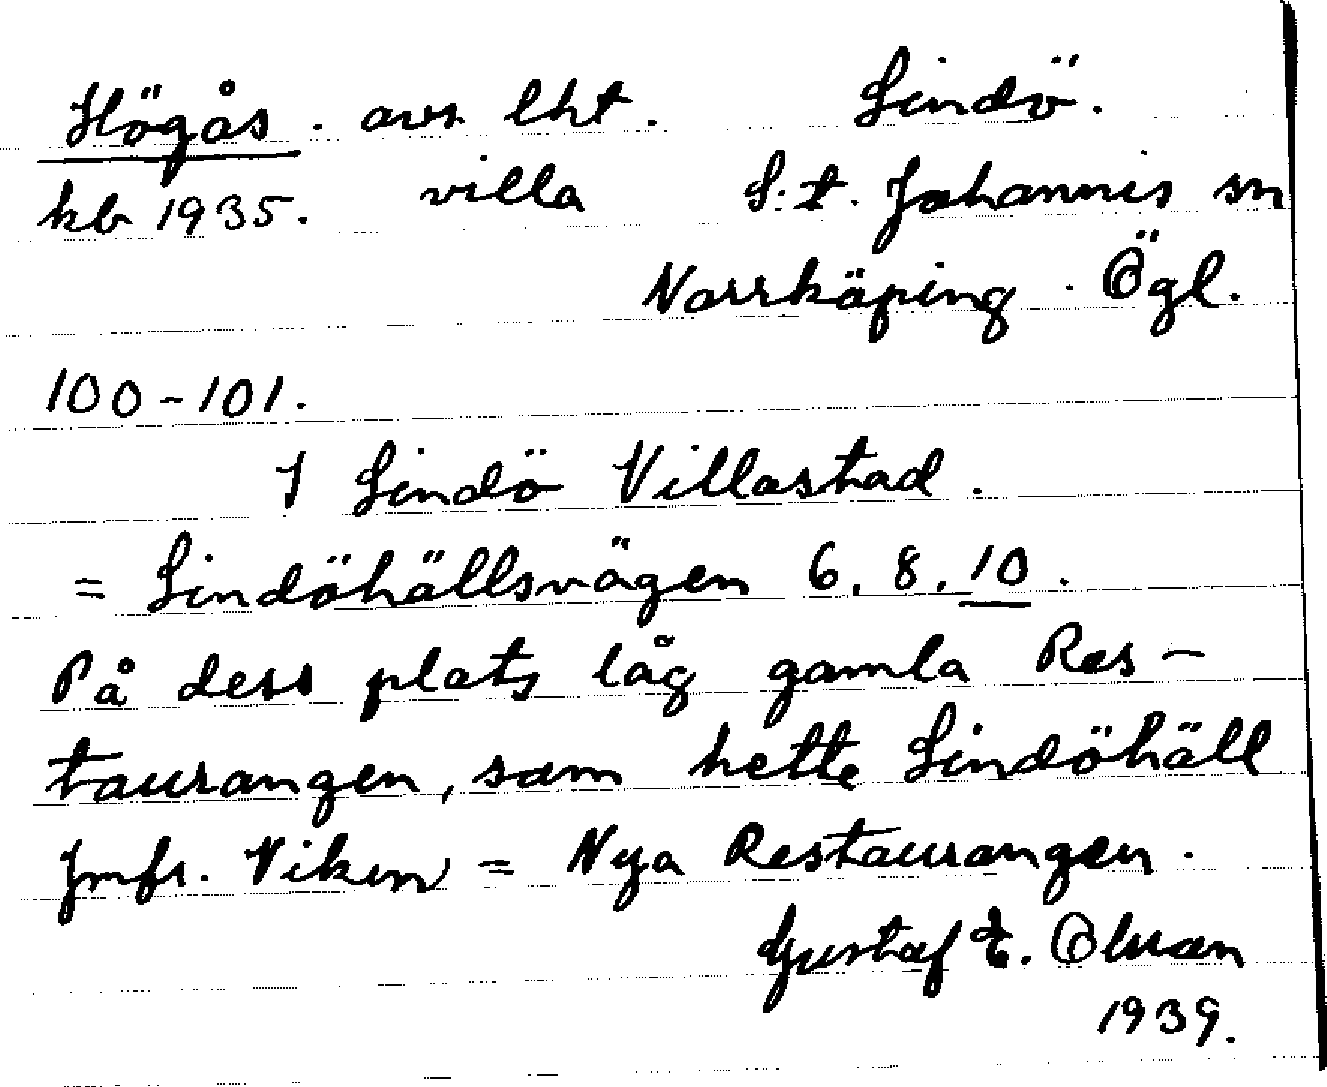 Högås. avs. lht. Lindö.
kb 1935. villa S:t. Johannis sn
Norrköping. Ögl.
100-101.
I Lindö Villastad.
= Lindöhällsvägen 6. 8. 10.
På dess plats låg gamla Res-
taurangen, som hette Lindöhäll
Jmfr. Viken = Nya Restaurangen.
Gustaf E. Olsson
1939.